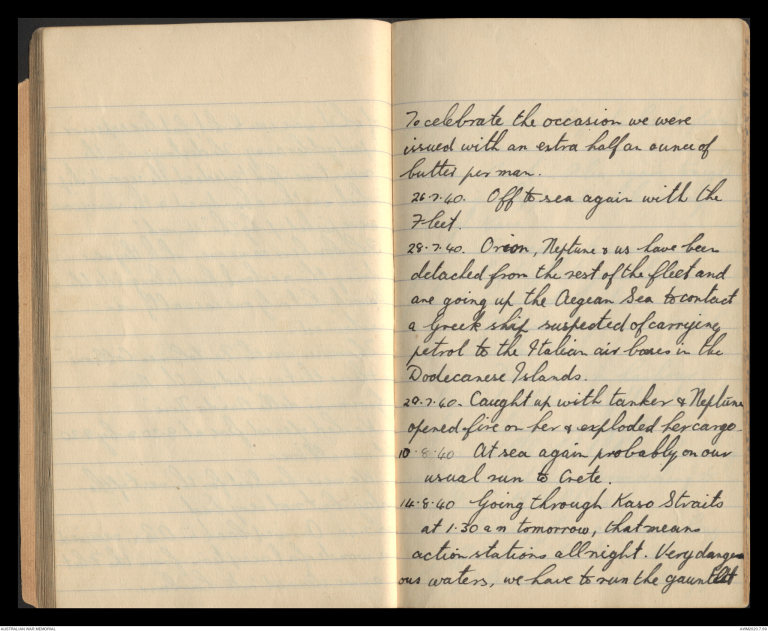 To celebrate the occasion we were
issued with an extra half an ounce of
butter per man.
26.7.40. Off to sea again with the
Fleet.
28.7.40. Orion, Neptune & us have been
detached from the rest of the fleet and
are going up the Aegean Sea to contact
a Greek ship suspected of carrying
petrol to the Italian air bases in the
Dodecanese Islands.
29.7.40. Caught up with tanker & Neptune
opened fire on her & exploded her cargo.
10.8.40 At sea again probably on our
usual run to Crete.
14.8.40 Going through Kaso Straits
at 1.30 am tomorrow, that means
action stations all night. Very danger
ous waters, we have to run the gauntlet
AUSTRALIAN WAR MEMORIAL